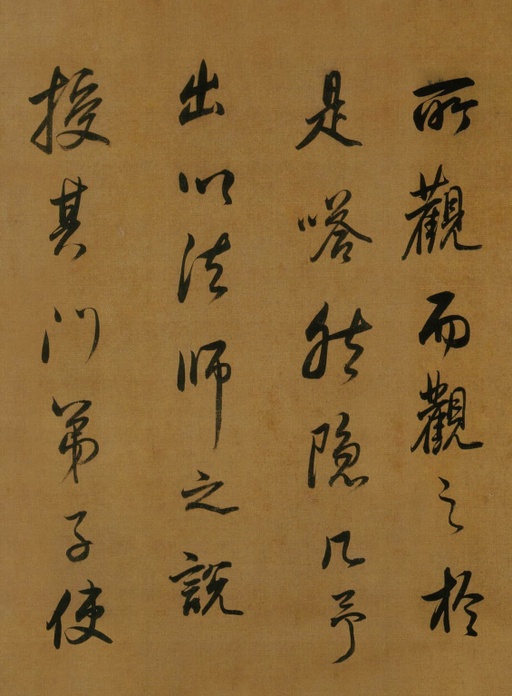 所觀而觀之於
是嗒然隱几予
出以法師之說
授其門弟子使